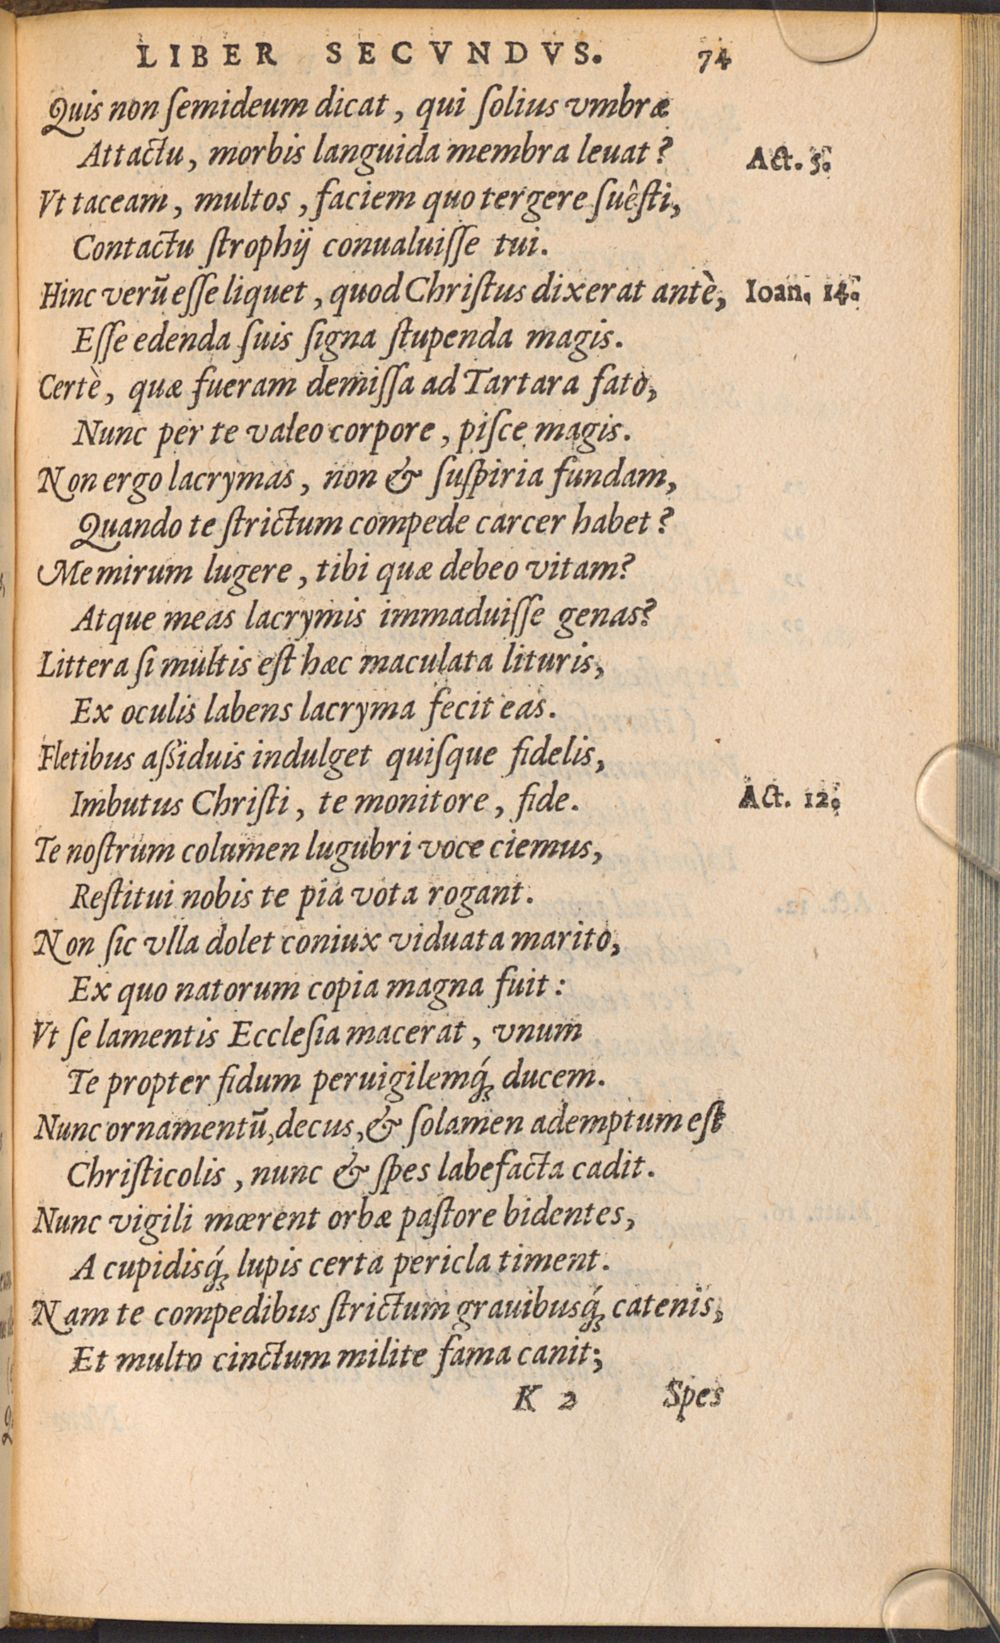 LIBER SECVNDVS. 74
Quis non ſemideum dicat, qui ſolius vmbræ
Attactu, morbis languida membra leuat? Act. 5.
Vt taceam, multos, faciem quo tergere ſuêſti,
Contactu ſtrophij conualuiſſe tui.
Hinc verū eſſe liquet, quod Chriſtus dixerat antè, Ioan. 14.
Eſſe edenda ſuis ſigna ſtupenda magis.
Certè, quæ fueram demiſſa ad Tartara fato,
Nunc per te valeo corpore, piſce magis.
Non ergo lacrymas, non & ſuſpiria fundam,
Quando te ſtrictum compede carcer habet?
Me mirum lugere, tibi quæ debeo vitam?
Atque meas lacrymis immaduiſſe genas?
Littera ſi multis eſt hæc maculata lituris,
Ex oculis labens lacryma fecit eas.
Fletibus aſsiduis indulget quiſque fidelis,
Imbutus Chriſti, te monitore, fide. Act. 12.
Te noſtrum columen lugubri voce ciemus,
Reſtitui nobis te pia vota rogant.
Non ſic vlla dolet coniux viduata marito,
Ex quo natorum copia magna fuit:
Vt ſe lamentis Eccleſia macerat, vnum
Te propter fidum peruigilemq́; ducem.
Nunc ornamentū, decus, & ſolamen ademptum eſt
Chriſticolis, nunc & ſpes labefacta cadit.
Nunc vigili mœrent orbæ paſtore bidentes,
A cupidisq́; lupis certa pericla timent.
Nam te compedibus ſtrictum grauibusq́; catenis,
Et multo cinctum milite fama canit;
K 2 Spes